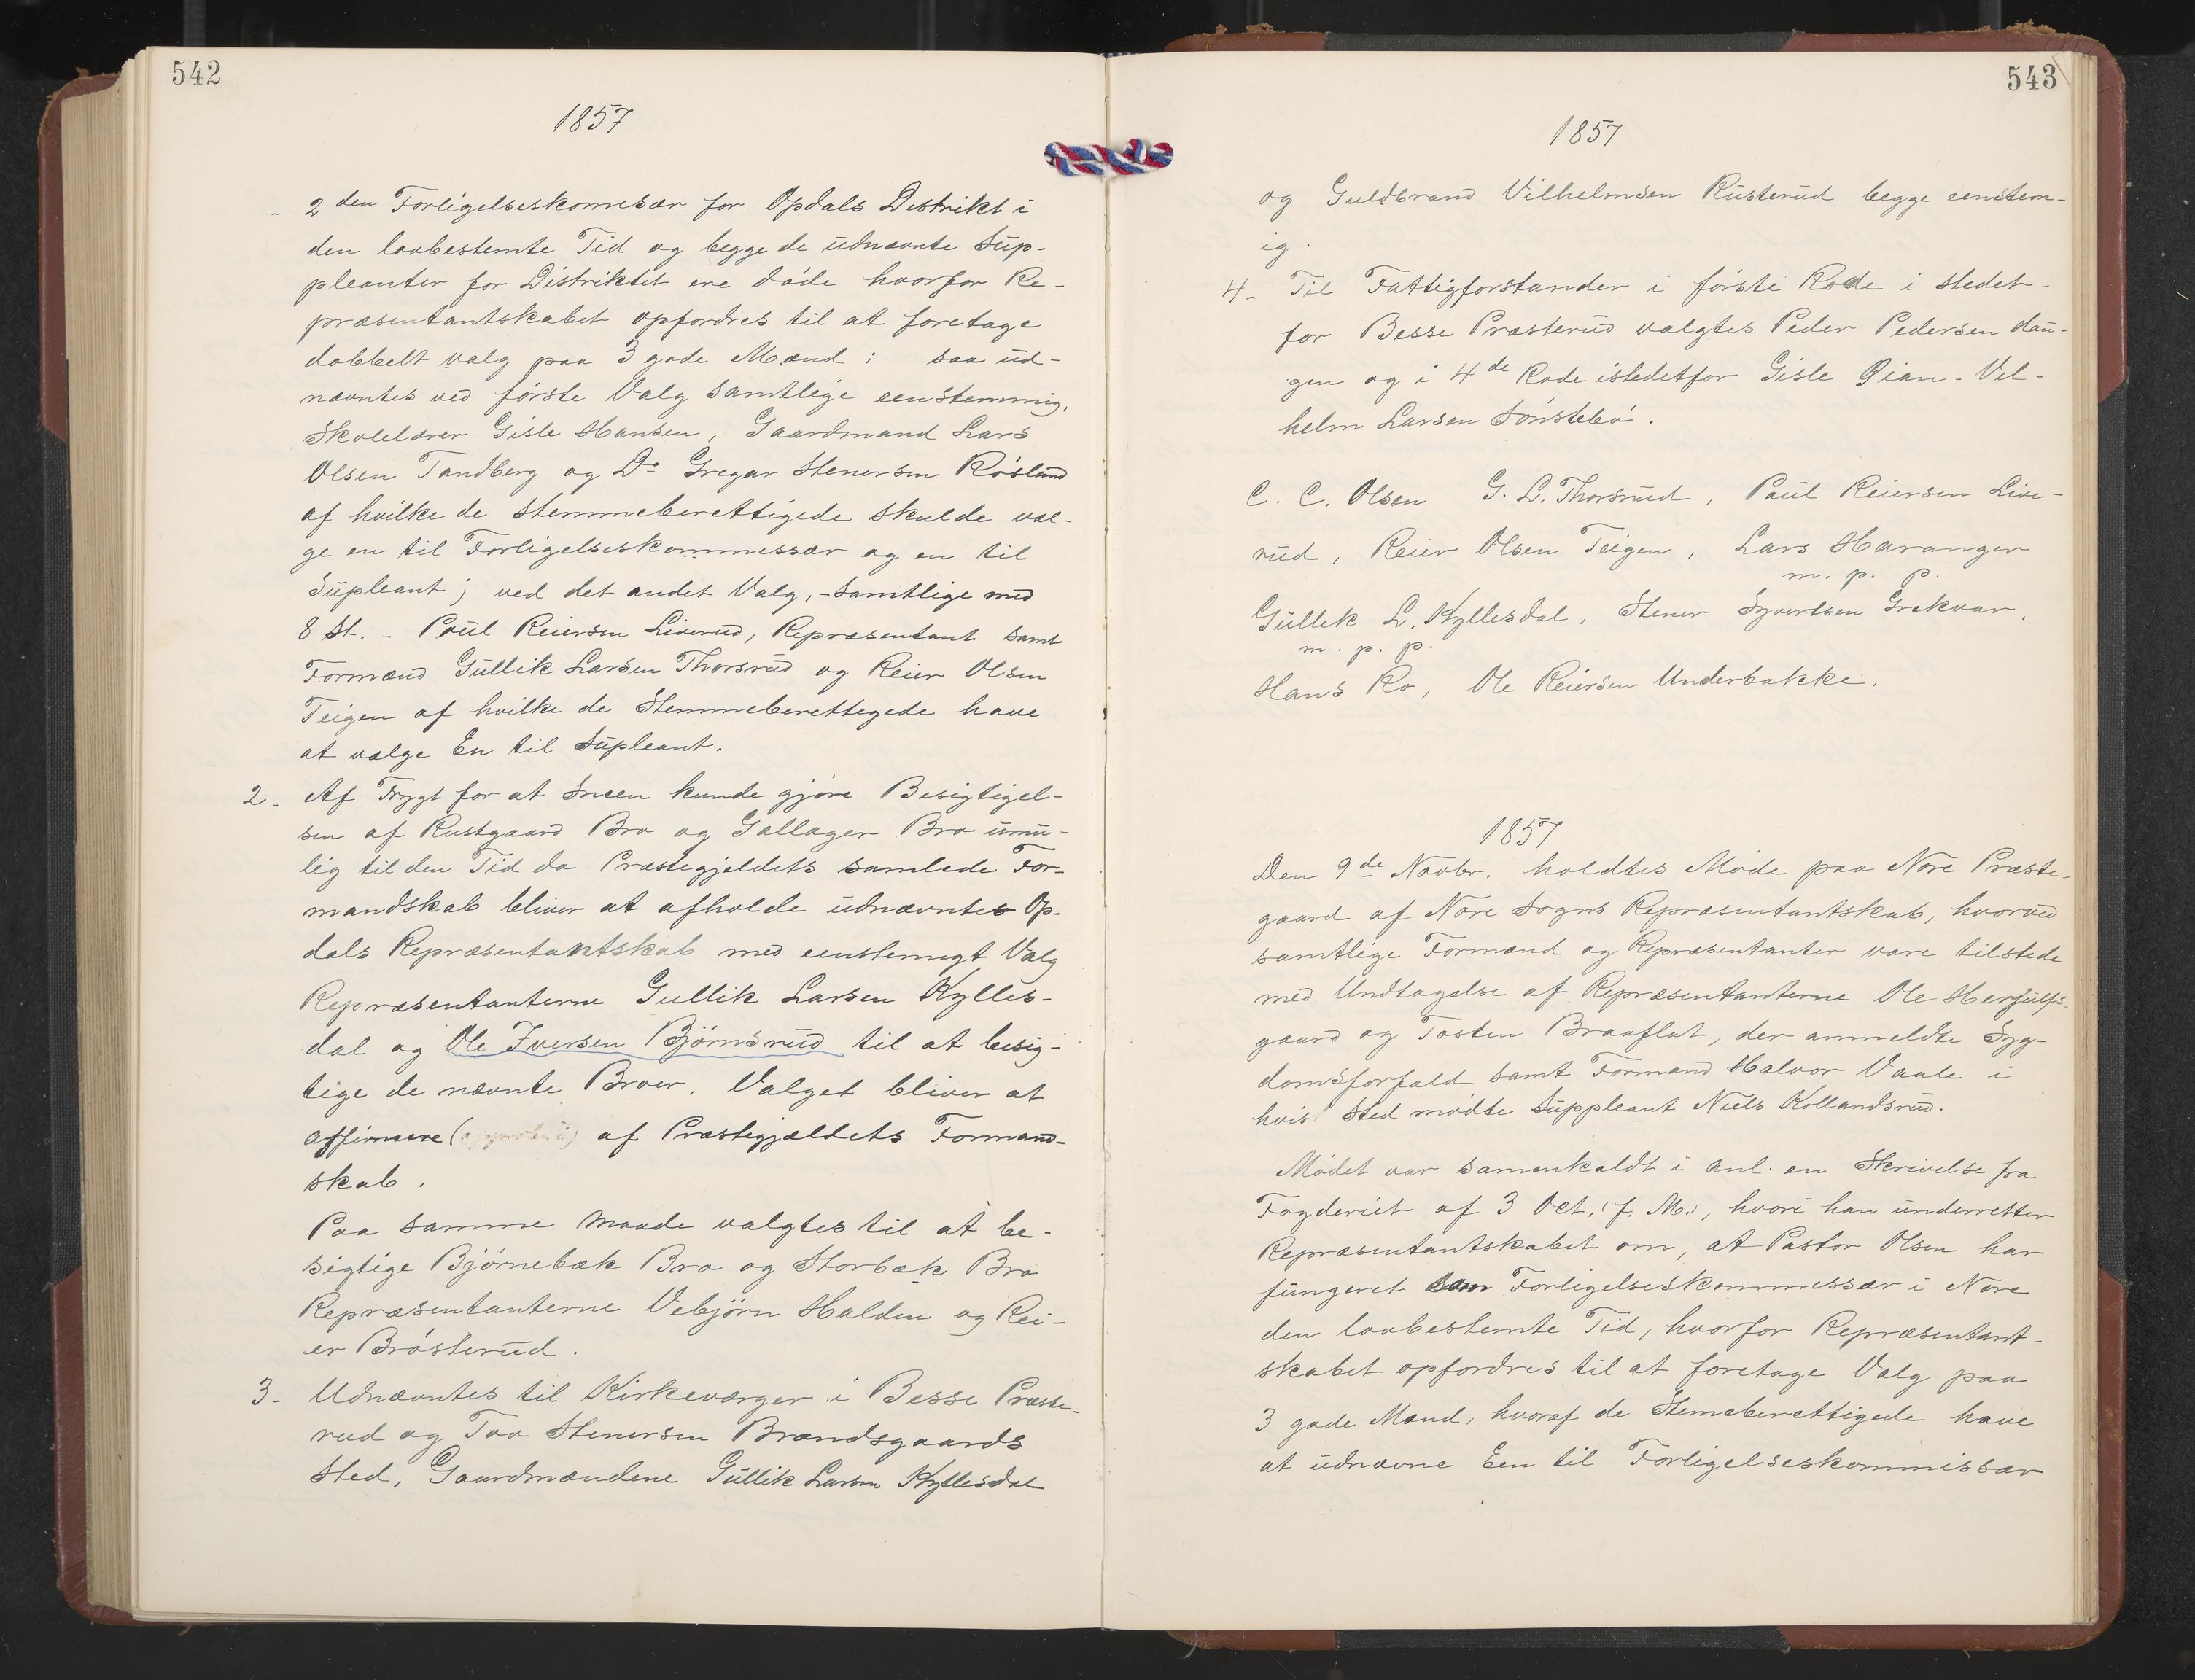 542
1857
- 2 den Forligelseskomesær for Opdals Distrikt i
den lovbestemte Tid og begge de udnævnte Sup-
pleanter for Distriktet ere döde hvorfor Re-
præsentantskabet opfordres til at foretage
dobbelt valg paa 3 gode Mænd: saa ud-
nævntes ved förste Valg samtlige eenstemmig,
Skolelærer Gisle Hansen, Gaardmand Lars
Olsen Tandberg og Do Gregar Stenersen Rösland
af hvilke de stemmeberettigede skulde væl-
ge en til Forligelseskommissær og en til
Supleant; ved det andet Valg, - samtlige med
8 St. - Poul Reiersen Liverud, Repræsentant samt
Formænd Gullik Larsen Thorsrud og Reier Olsen
Teigen af hvilke de Stemmeberettegede have
at vælge En til Supleant.
2. Af Frygt for at Sneen kunde gjöre Besigtigel-
sen af Rustgaard Bro og Gallager Bro umu-
lig til den Tid da Præstegjeldets samlede For-
mandskab bliver at afholde udnævntes Op-
dals Repræsentantskab med eenstemigt Valg
Repræsentanterne Gullik Larsen Kylles-
dal og Ole Iversen Björnsrud til at besig-
tige de nævnte Broer. Valget bliver at
affirmere ( ) af Præstegjældets Formand-
skab.
Paa samme Maade valgtes til at be-
sigtige Björnebæk Bro og Storbæk Bro
Repræsentanterne Vebjörn Halden og Rei-
er Brösterud.
3- Udnævntes til Kirkeværger i Besse Præste-
rud og Tov Stenersen Brændsgaards
Sted, Gaardmændene Gullik Larsen Kyllesdal
543
1857
og Guldbrand Vilhelmsen Rusterud begge eenstem-
ig.
4- Til Fattigforstander i förste Rode i stedet-
for Besse Præsterud valgtes Peder Pedersen Hau-
gen og i 4de Rode istedetfor Gisle - Vel-
helm Larsen Sönstebö.
C. C. Olsen G. L. Thorsrud, Paul Reiersen Live-
rud, Reier Olsen Teigen, Lars Haranger
m. p. p.
Gullik L. Kyllesdal, Stener Syvertsen Grekvar,
m. p. p.
Hans Ro, Ole Reiersen Underbakke.
1857
Den 9de Novbr. holdtes Möde paa Nore Præste-
gaard af Nore Sogns Repræsentantskab, hvorved
samtlige Formænd og Repræsentanter vare tilstede
med Undtagelse af Repræsentanterne Ole Herjulfs-
gaard og Tosten Braaflat, der anmeldte Syg-
domsforfald samt Formand Halvor Vaale i
hvis Sted mödte Suppleant Niels Kollandsrud.
Mödet var samenkaldt i anl. en Skrivelse fra
Fogderiet af 3 Oct. (f. M.), hvori han underretter
Repræsentantskabet om, at Pastor Olsen har
fungeret som Forligelseskommessær i Nore
den lovbestemte Tid, hvorfor Repræsentant-
skabet opfordres til at foretage Valg paa
3 gode Mænd, hvoraf de Stemeberettigede have
at udnævne Een til Forligelseskommissær